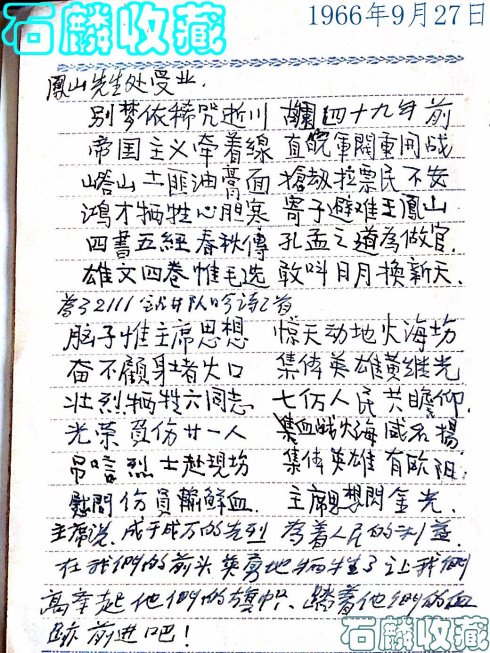 石麟收藏
1966年9月27日
鳳山先生处受业.
别梦依稀咒逝川 故園四十九年前
帝国主义牵着線 直皖軍閥重開战
山土匪油膏面 搶劫拉票民不安
鴻才牺牲心胆寒 寄子避难王鳳山
四書五經春秋傳 孔孟之道為做官.
雄文四卷惟毛选 敢叫日月换新天.
2111 队吟诗2首
脑子惟主席思想 惊天动地火海坊
奋不顧身堵火口 集体英雄黄继光
壮烈牺牲六同志 七仴人民共瞻仰.
光荣負伤廿一人 血战火海威名揚
吊唁烈士赴現坊 集体英雄有欧阳
慰問伤員輸鮮血. 主席思想閃金光.
主席说.成千成万的先烈 為着人民的利益.
在我們的前头英勇地牺牲了让我們
高举起他們的旗帜、踏着他們的血
跡前进吧!
石麟收藏